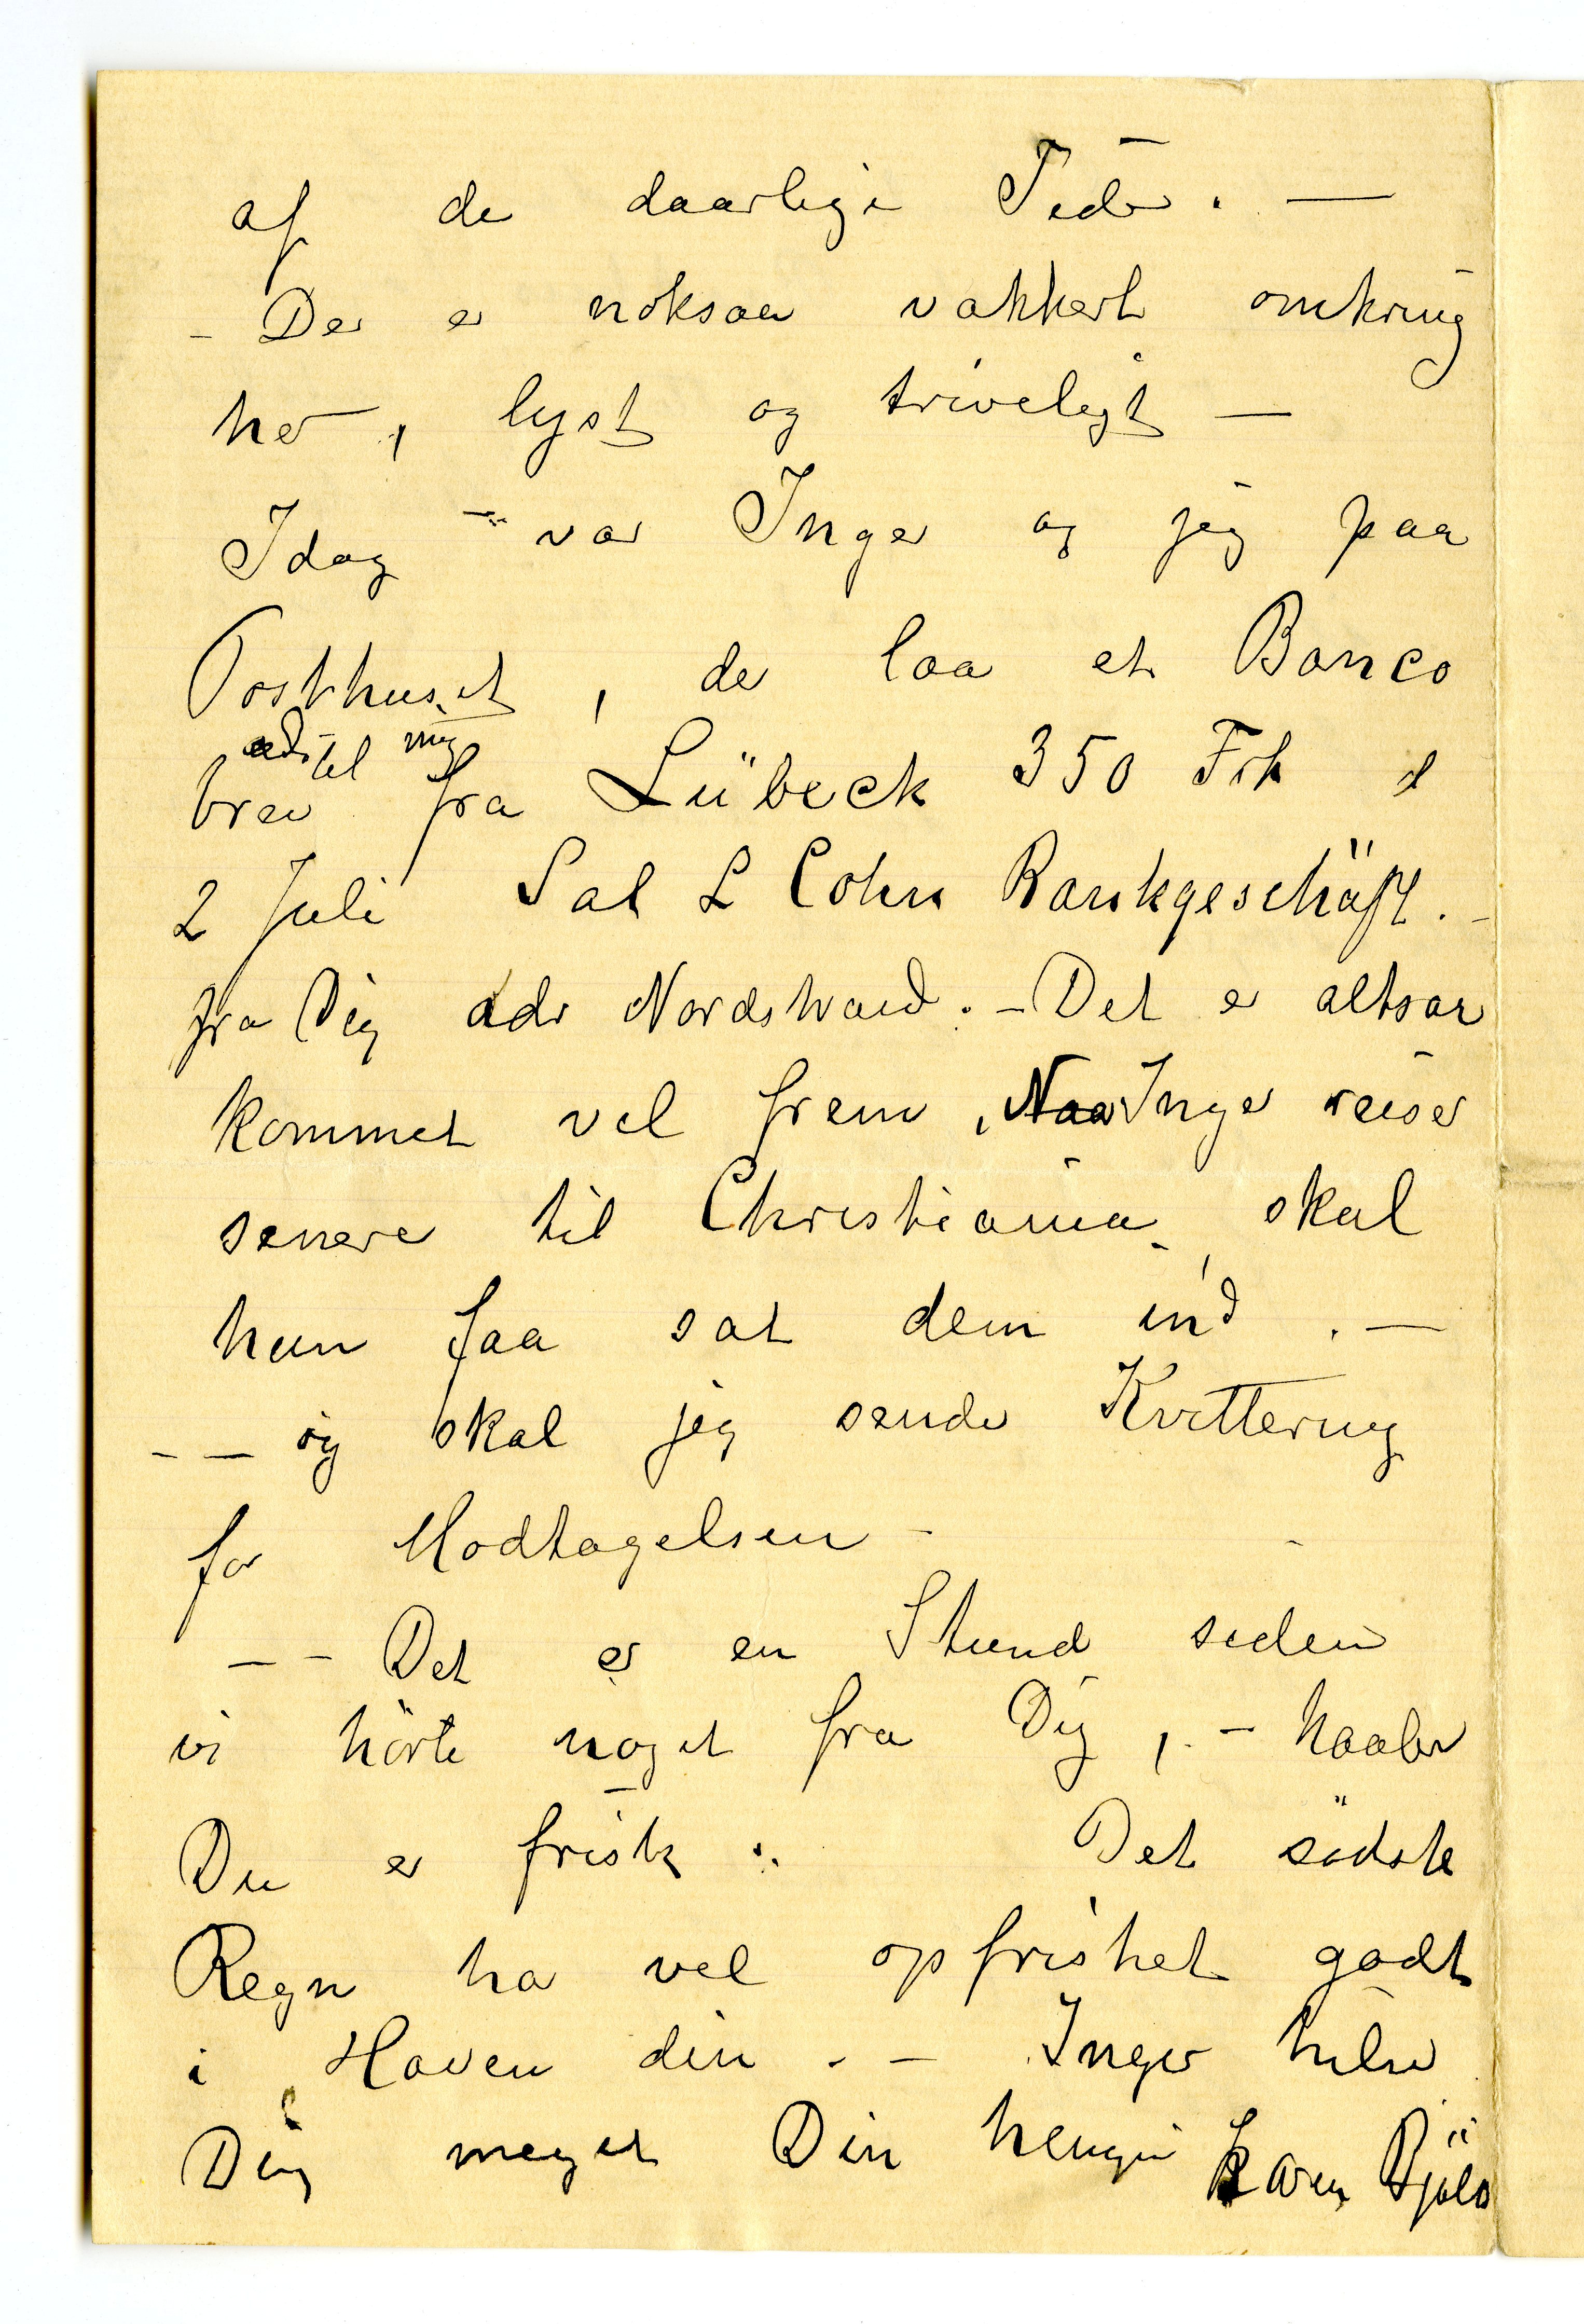 af de daarlige Tider. —
– Der er noksaa vakkert omkring
her, lyst og triveligt —
Idag – var Inger og jeg paa
Posthuset, der laa et Banco
adr til mig
brev fra Lübeck 350 Frk d
2 Juli Sal L Cohn Bankgeschäft. –
fra Dig adr Nordstrand. – Det er altsaa
kommet vel frem, Naar Inger reiser
senere til Christiania, skal
hun faa sat dem ind. —
– — og skal jeg sende Kvittering
for Modtagelsen –
— – Det er en Stund siden
vi hörte noget fra Dig, – haaber
Du er frisk. Det sidste
Regn har vel opfrisket godt
i Haven din. – Inger hilser
Dig meget Din hengivne Karen Bjöls